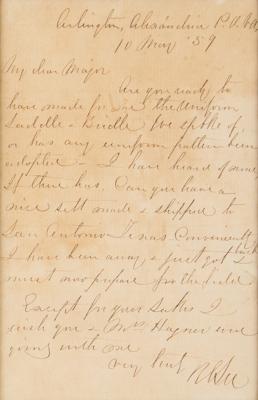 Arlington, Alexandria P.O. Va
10 May '59
My dear Major
Are you ready to
have made for me the uniform
Saddle & Bridle we spoke of,
or has any uniform pattern been
adopted - I have heard of none
If there has. Can you have a
nice sett made & shipped to
San Antonio Texas Conveniently
I have been away & just got back
must now prepare for the field
Except for your sakes I
wish you & Mrs Hagner were
going with me
very truly
R E Lee